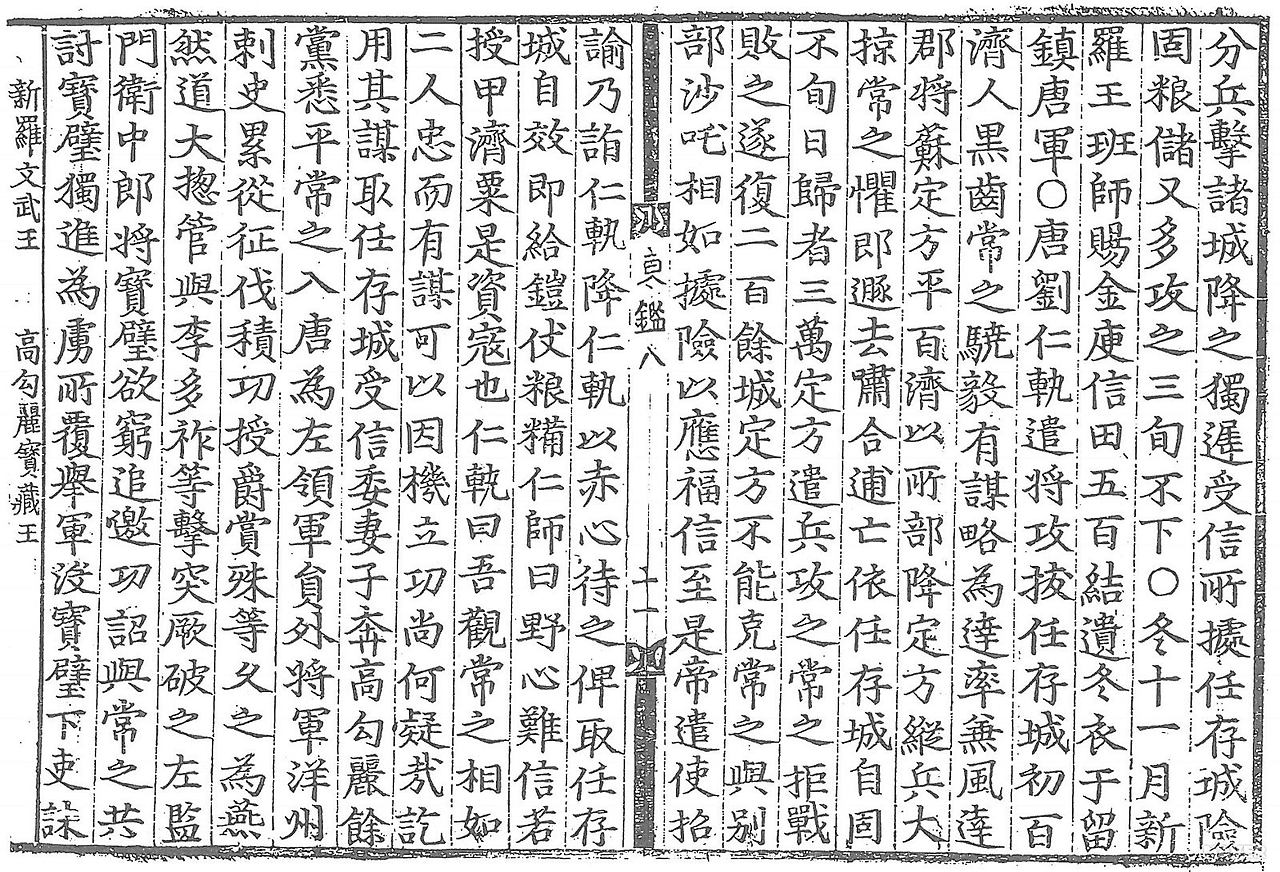 分兵擊諸城降之獨遲受信所據任存城險
固粮儲又多攻之三旬不下〇冬十一月新
羅王班師賜金庾信田五百結遺冬衣于留
鎮唐軍〇唐劉仁軌遣將攻拔任存城初百
濟人黑齒常之驍毅有謀略為達率兼風達
郡將蘇定方平百濟以所部降定方縱兵大
掠常之懼即遯去嘯合逋亡依任存城自固
不旬日歸者三萬定方遣兵攻之常之拒戰
敗之遂復二百餘城定方不能克常之與別
部沙吒相如據險以應福信至是帝遣使招
鑑八 十一
諭乃詣仁軌降仁軌以赤心待之俾取任存
城自效即給鎧仗粮糒仁師曰野心難信若
授甲濟粟是資寇也仁軌曰吾觀常之相如
二人忠而有謀可以因機立功尚何疑哉訖
用其謀取任存城受信委妻子奔高勾麗餘
黨悉平常之入唐為左領軍負外將軍洋州
刺史累從征伐積功授爵賞殊等久之為燕
然道大揔管與李多祚等擊突厥破之左監
門衛中郎將寶璧欲窮追邀功詔與常之共
討寶璧獨進為虜所覆舉軍沒寶璧下吏誅
新羅文武王 高勾麗寶藏王